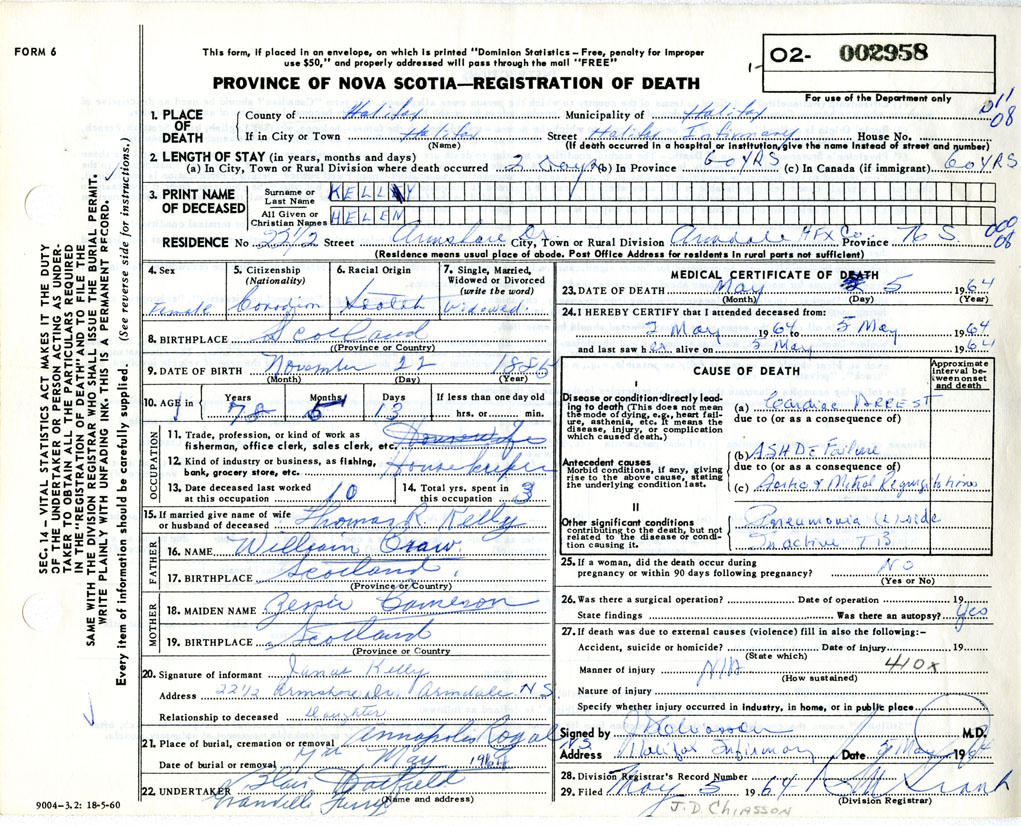 FORM 6
This form, if placed in an envelope, on which is printed "Dominion Statistics – Free, penalty for improper
use $50," and properly addressed will pass through the mail "FREE"
PROVINCE OF NOVA SCOTIA—REGISTRATION OF DEATH
1- 02- 002958
For use of the Department only
011
08
1. PLACE OF DEATH
County of Halifax Municipality of Halifax
If in City or Town Halifax Street Halifax Infirmary House No.
(Name) (If death occurred in a hospital or institution, give the name instead of street and number)
2. LENGTH OF STAY (in years, months and days)
(a) In City, Town or Rural Division where death occurred 2 days (b) In Province 60 YRS (c) In Canada (if immigrant) 60 YRS
3. PRINT NAME OF DECEASED
Surname or Last Name KELLY
All Given or Christian Names HELEN
RESIDENCE No 22 1/2 Street Armshore Dr. City, Town or Rural Division Armdale HFX Co. Province N S.
000
08
(Residence means usual place of abode. Post Office Address for residents in rural parts not sufficient)
4. Sex Female
5. Citizenship (Nationality) Canadian
6. Racial Origin Scotch
7. Single, Married, Widowed or Divorced (write the word) Widowed.
8. BIRTHPLACE Scotland
(Province or Country)
9. DATE OF BIRTH November 22 1885
(Month) (Day) (Year)
10. AGE in Years 78 Months 5 Days 13 If less than one day old hrs. or min.
OCCUPATION
11. Trade, profession, or kind of work as fisherman, office clerk, sales clerk, etc. Housewife
12. Kind of industry or business, as fishing, bank, grocery store, etc. Housekeeper
13. Date deceased last worked at this occupation 10
14. Total yrs. spent in this occupation 3
15. If married give name of wife or husband of deceased Thomas R. Kelly
FATHER
16. NAME William Craw.
17. BIRTHPLACE Scotland
(Province or Country)
MOTHER
18. MAIDEN NAME Jessie Cameron
19. BIRTHPLACE Scotland
(Province or Country
20. Signature of informant Janat Kelly
Address 22 1/2 Armshore Dr Armdale N.S.
Relationship to deceased Daughter
21. Place of burial, cremation or removal Annapolis Royal N.S.
Date of burial or removal 7th May 1964
22. UNDERTAKER Hatfield
Granville Ferry
(Name and address)
9004—3.2: 18-5-60
MEDICAL CERTIFICATE OF DEATH
23. DATE OF DEATH May 5 1964
(Month) (Day) (Year)
24. I HEREBY CERTIFY that I attended deceased from:
2 May 1964 to 5 May 1964
and last saw her alive on 5 May 1964
CAUSE OF DEATH
Approximate interval between onset and death
I
Disease or condition directly leading to death (This does not mean the mode of dying, e.g., heart failure, asthenia, etc. It means the disease, injury, or complication which caused death.)
(a) Cardiac ARREST
due to (or as a consequence of)
Antecedent causes
Morbid conditions, if any, giving rise to the above cause, stating the underlying condition last.
(b) ASHD & Failure
due to (or as a consequence of)
(c) Aortic & Mitral Regurgitations
II
Other significant conditions contributing to the death, but not related to the disease or condition causing it.
Pneumonia (L) side
Inactive TB
25. If a woman, did the death occur during pregnancy or within 90 days following pregnancy? NO
(Yes or No)
26. Was there a surgical operation? Date of operation 19
State findings Was there an autopsy? Yes
27. If death was due to external causes (violence) fill in also the following:–
Accident, suicide or homicide? Date of injury 19
(State which)
Manner of injury N/A 410X
(How sustained)
Nature of injury
Specify whether injury occurred in industry, in home, or in public place
Signed by M.D.
Address Halifax Infirmary Date 5 May 1964
28. Division Registrar's Record Number
29. Filed May 5 1964
(Division Registrar)
J.D. CHIASSON
SEC. 14 – VITAL STATISTICS ACT MAKES IT THE DUTY
OF THE UNDERTAKER OR PERSON ACTING AS UNDER-
TAKER TO OBTAIN ALL THE PARTICULARS REQUIRED
IN THE "REGISTRATION OF DEATH" AND TO FILE THE
SAME WITH THE DIVISION REGISTRAR WHO SHALL ISSUE THE BURIAL PERMIT.
WRITE PLAINLY WITH UNFADING INK. THIS IS A PERMANENT RECORD.
Every item of information should be carefully supplied. (See reverse side for instructions.)